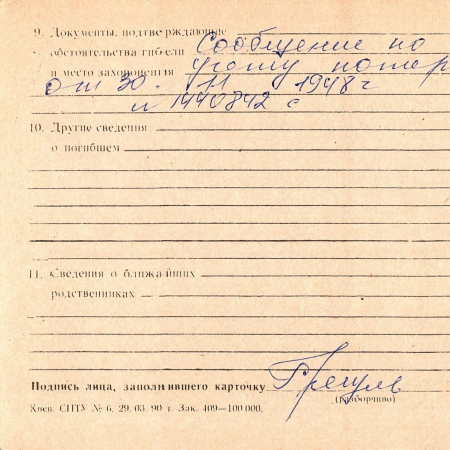 9. Документы, подтверждающие
обстоятельства гибели Сообщение по
и место захоронения учоту потер
От 30. 11 1948 г
и 1440842 с
10. Другие сведения
о погибшем
11. Сведения о ближайших
родственниках
Подпись лица, заполнившего карточку
(разборчиво)
Киев. СПТУ № 6. 29. 03. 90 г. Зак. 409—100 000.